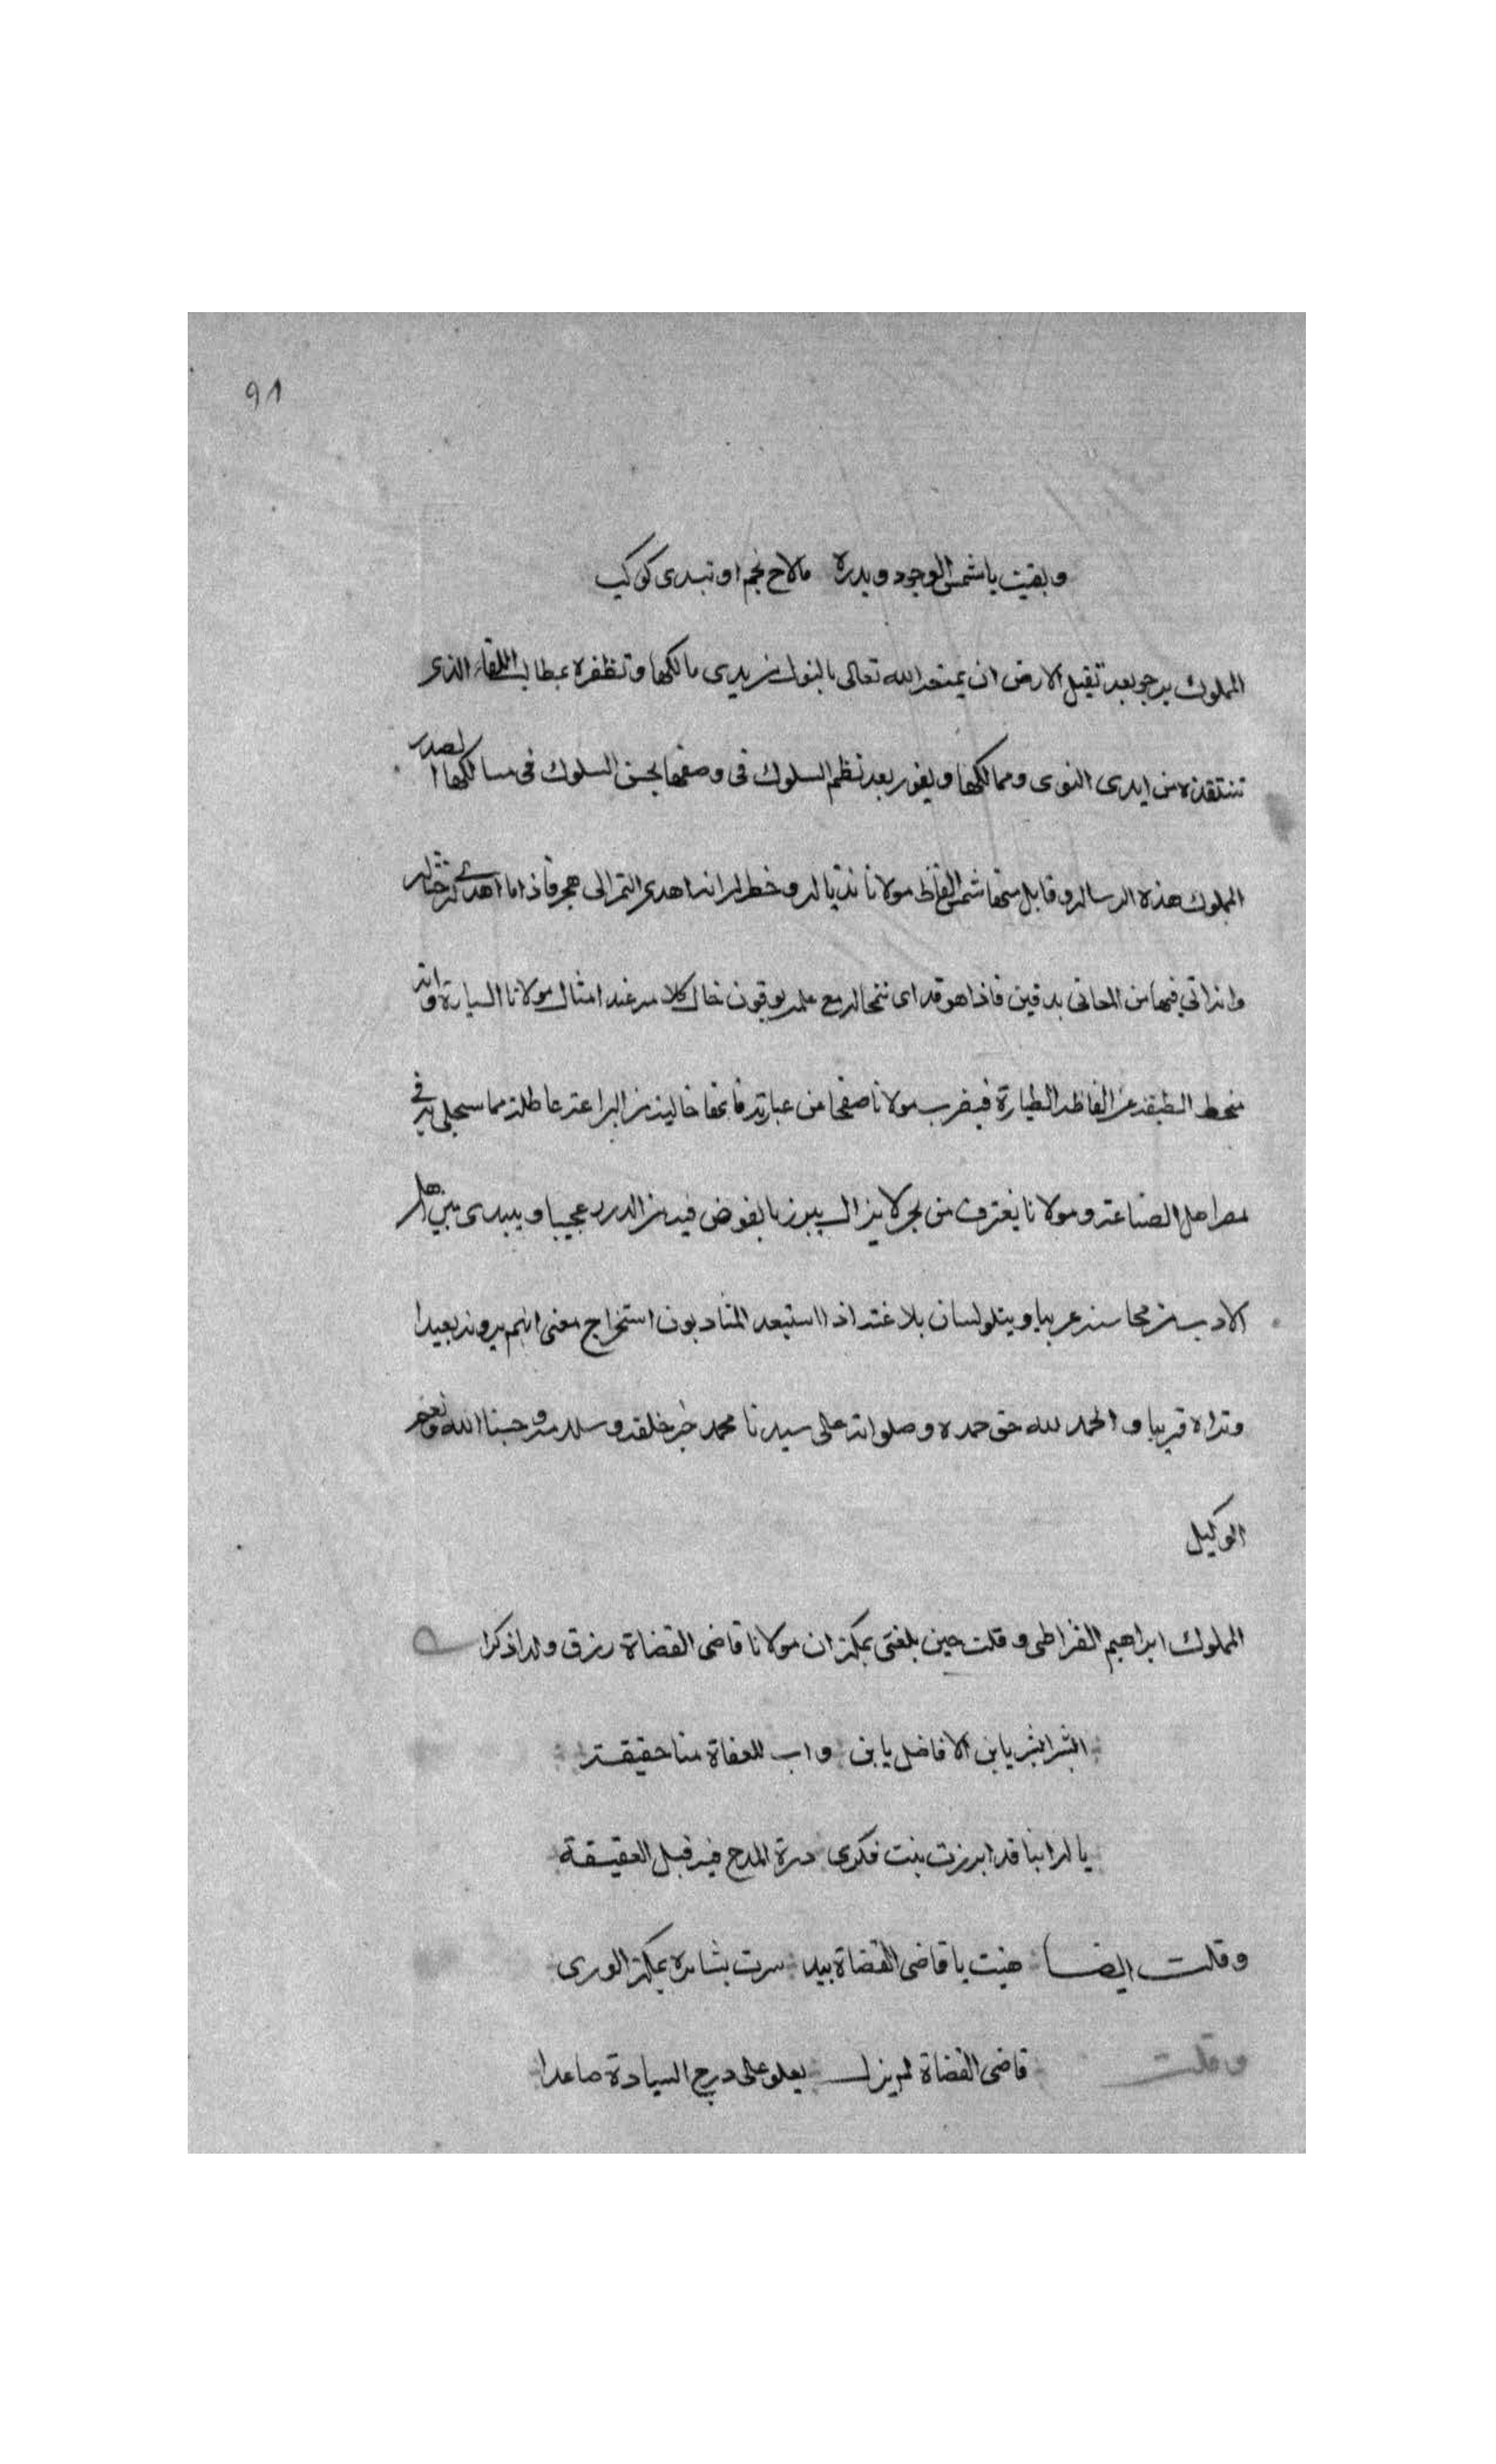 ٩١
وبقيت يا شمس الوجود وبدره ما لاح نجم او تبدى كوكب
المملوك يرجو بعد تقبيل الارض ان يمتعه الله تعالى بالمثول بين يدي مالكها وتظفره بمطالب اللقاء الذي
تنتقذه من ايدي النوى ومهالكها ويفوز بعد نظم السلوك في وصفها بحسن السلوك في مسالكها اصدر
المملوك هذه الرسالة وقابل منها شمس الفاظ مولانا بذبالة وخطر له انه اهدى التمر الى هجر فاذا ما اهدى له حثالة
وانه اتى فيها من المعاني بدقيق فاذا هو قد اتى بنخالة مع علمه بوقوف كلامه عند امثال مولانا السيارة وانه
منحط الطبقة عن الفاظه الطيارة فيضرب مولانا صفحا عن عبارته فانها خالية من البراعة عاطلة مما سيجلى به في
مصر اهل الصناعة ومولانا يغترف من بحر لا يزال يبرز بالغوض فيه من الدرر عجيبا ويبدي بين اهل
الادب من محاسنه غريبا ويتلو لسان بلاغته اذا استبعد المتادبون استخراج معنى انهم يرونه بعيدا
ونراه قريبا والحمد لله حق حمده وصلواته على سيدنا محمد خير خلقه وسلامه وحسبنا الله ونعم
الوكيل
المملوك ابراهيم القيراطي وقلت حين بلغني بمكة ان مولانا قاضي القضاة رزق ولدا ذكرا
ابشر ابشر يا ابن الافاضل يا ابن واب للعفاة منا حقيقة
يا له ابنا قد ابرزت بنت فكري درة المدح فيه قبل العقيقة
وقلت ايضا هنيت يا قاضي القضاة سرت بشائره بمكة الورى
وقلت قاضي القضاة لم يزل يعلو على درج السيادة صاعدا